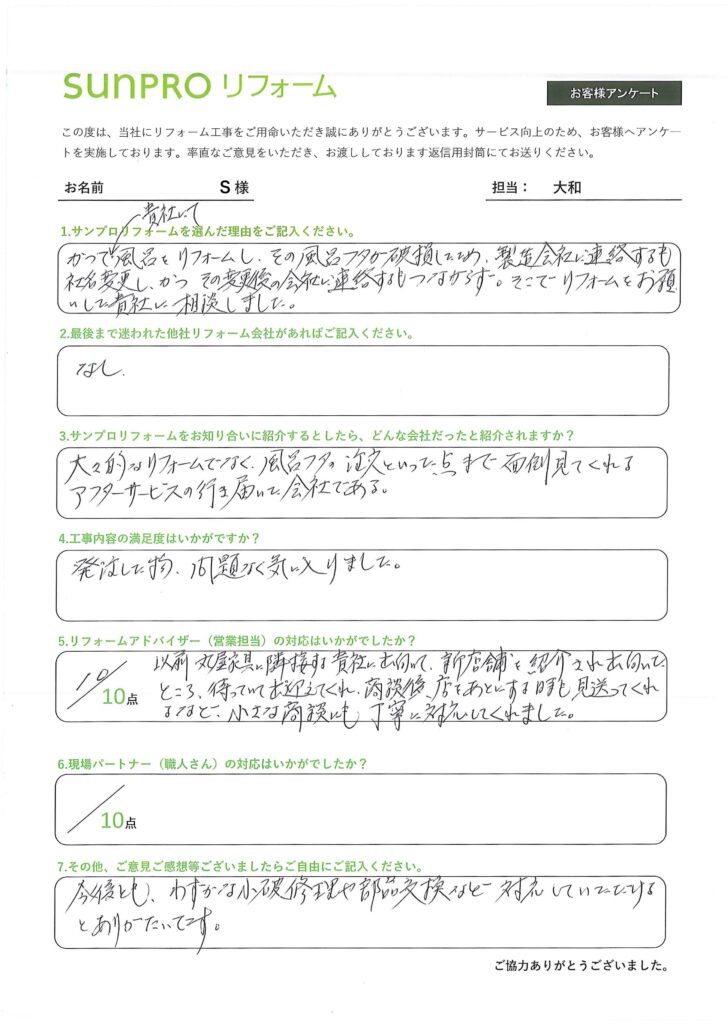 SUNPRO リフォーム
お客様アンケート
この度は、当社にリフォーム工事をご用命いただき誠にありがとうございます。サービス向上のため、お客様へアンケー
トを実施しております。率直なご意見をいただき、お渡ししております返信用封筒にてお送りください。
お名前 S 様 担当： 大和
貴社にて
1.サンプロリフォームを選んだ理由をご記入ください。
かつて風呂をリフォームし、その風呂フタが破損したため、製造会社に連絡するも
社名変更し、かつ その変更後の会社に連絡するもつながらず。そこでリフォームをお願
いした貴社に相談しました。
2.最後まで迷われた他社リフォーム会社があればご記入ください。
なし.
3.サンプロリフォームをお知り合いに紹介するとしたら、どんな会社だったと紹介されますか？
大々的なリフォームでなく、風呂フタの注文といった点まで面倒見てくれる
アフターサービスの行き届いた会社である。
4.工事内容の満足度はいかがですか？
発注した物、問題なく気に入りました。
5.リフォームアドバイザー（営業担当）の対応はいかがでしたか？
10／10点
以前 丸屋家具に隣接する貴社に出向いて、新店舗を紹介され出向いた
ところ、待っていて出迎えてくれ、商談後、店をあとにする時も見送ってくれ
るなど、小さな商談にも丁寧に対応してくれました。
6.現場パートナー（職人さん）の対応はいかがでしたか？
／10点
7.その他、ご意見ご感想等ございましたらご自由にご記入ください。
今後とも、わずかな小破修理や部品交換など対応していただける
とありがたいです。
ご協力ありがとうございました。